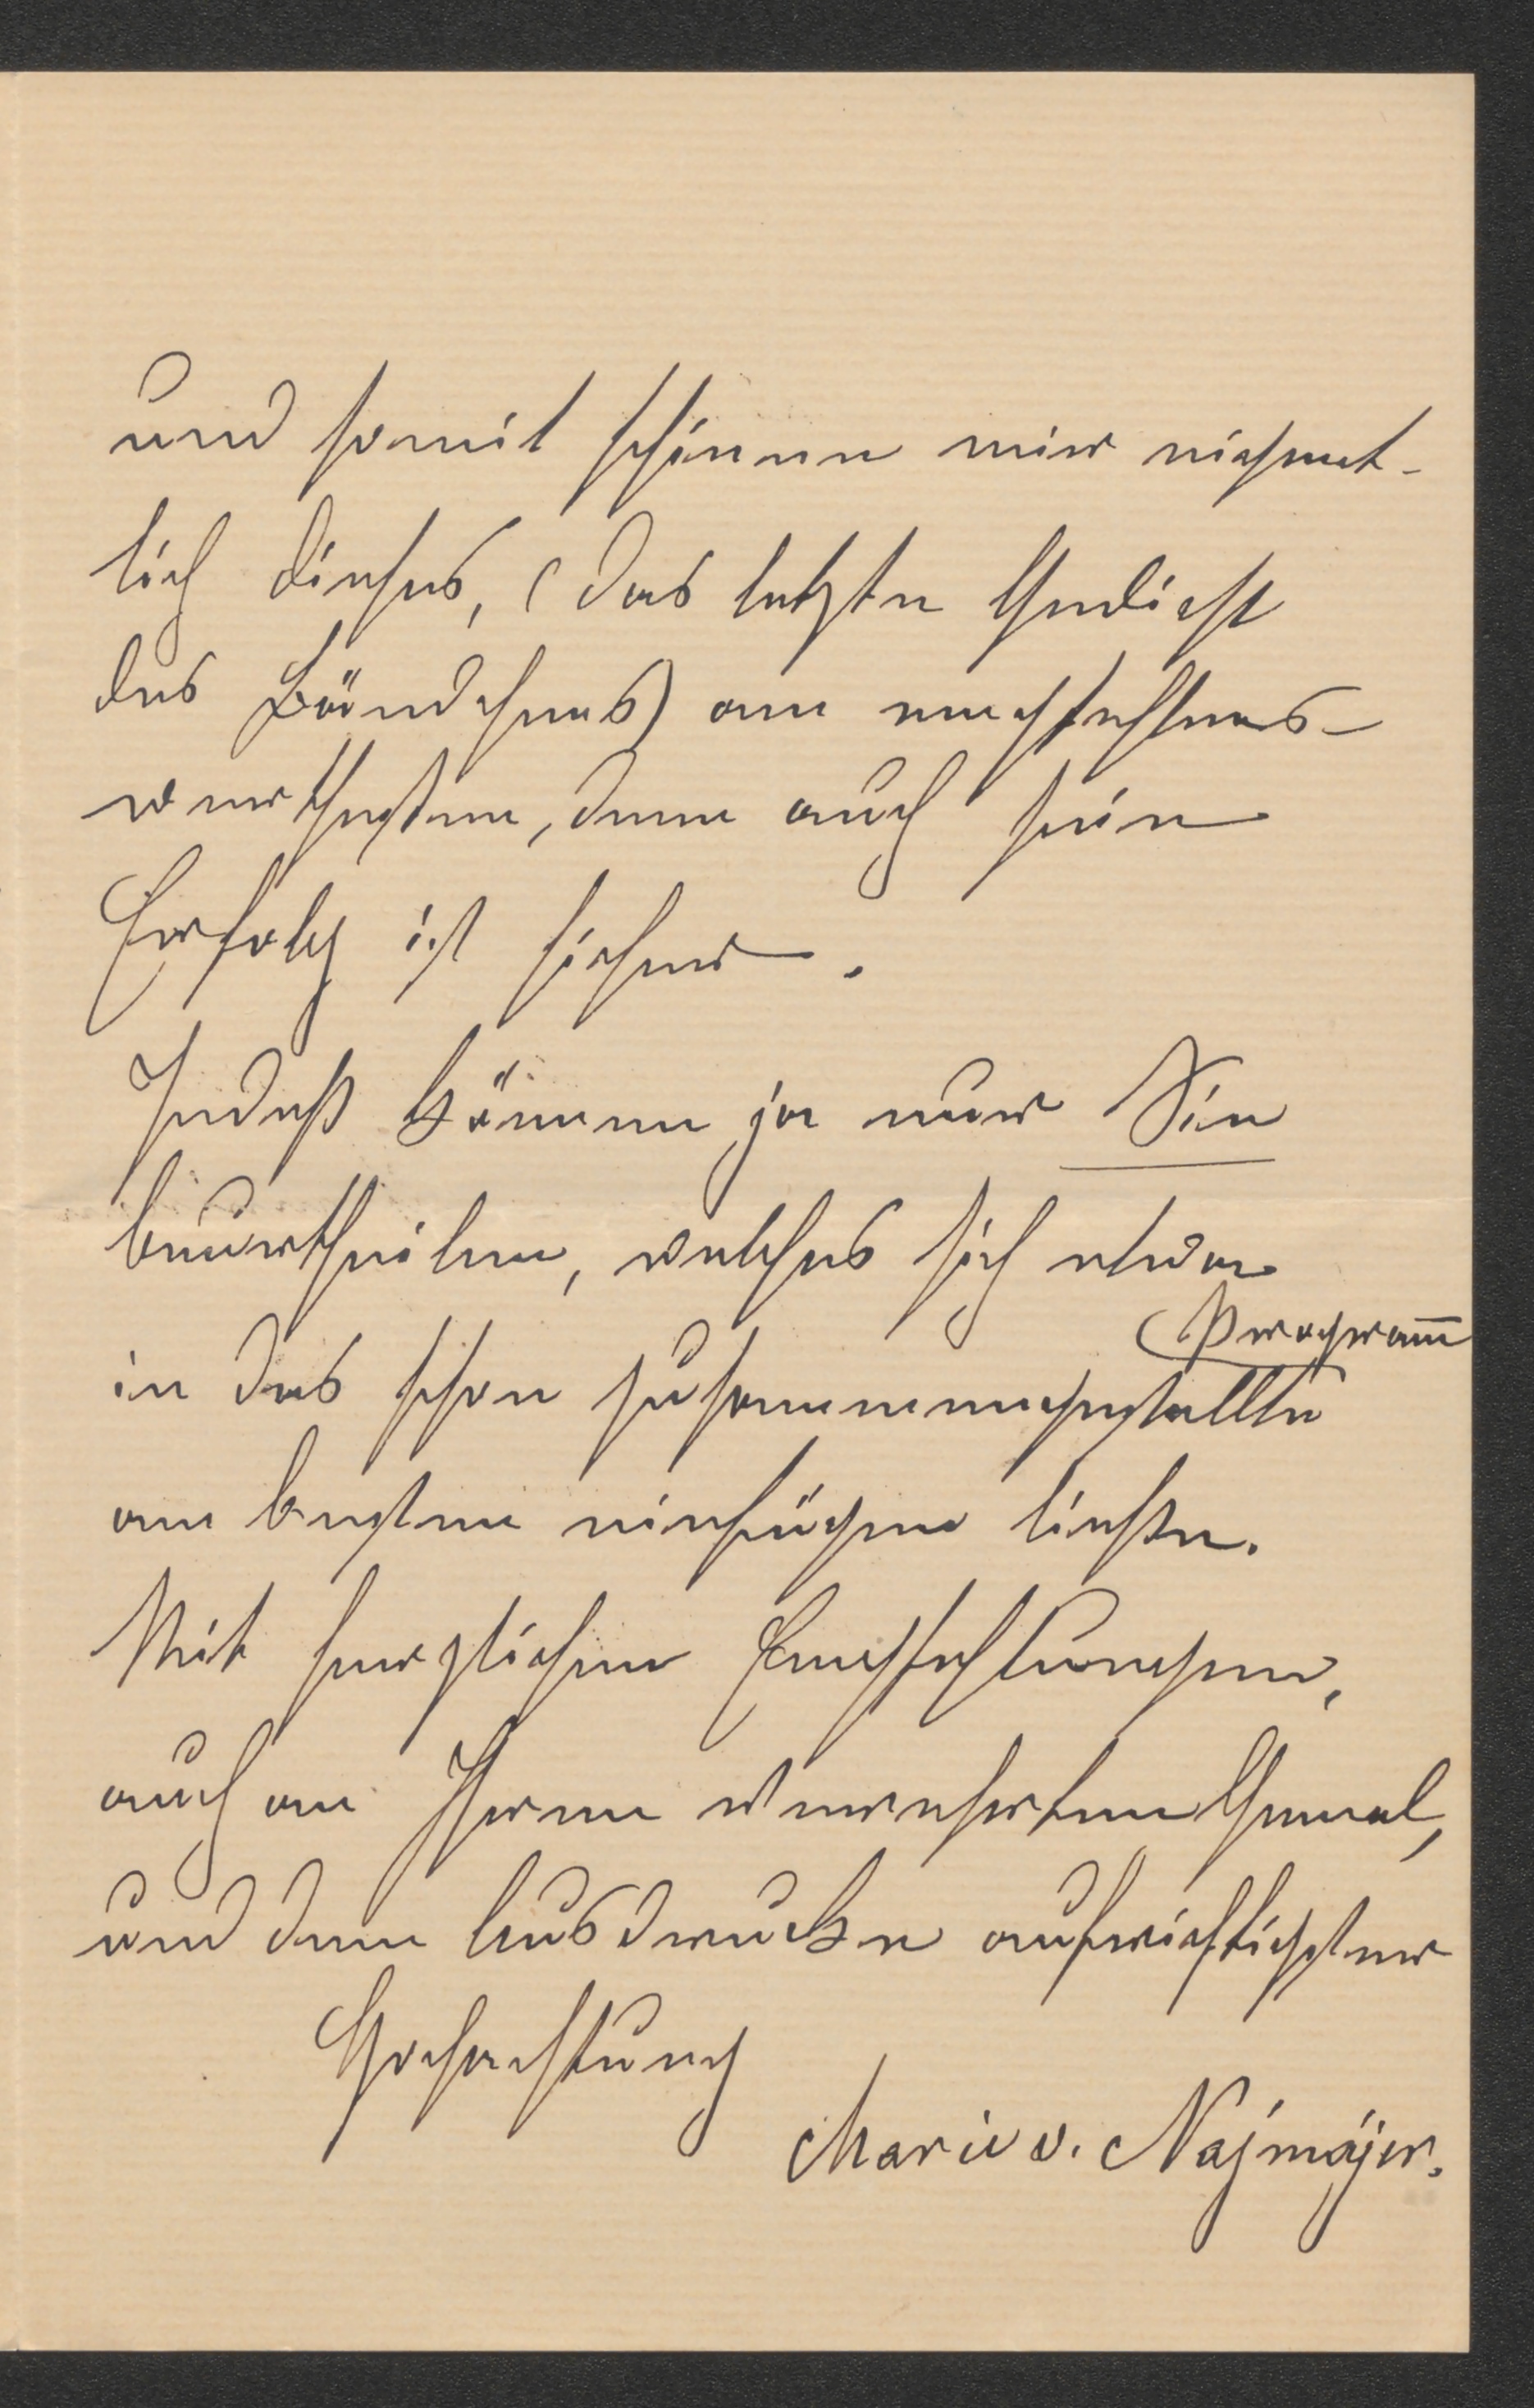 und somit schiene mir eigent-
lich dieses, (das letzte Gedicht
des Bändchens) am empfehlens-
werthesten, denn auch sein
Erfolg ist sicher.
Indeß können ja nur Sie
beurtheilen, welches sich etwa
in das schon zusammengestellte
Programm
am besten einfügen ließe.
Mit herzlichen Empfehlungen,
auch an Ihren verehrten Gemal,
und dem Ausdrucke aufrichtigster
Hochachtung
Marie v. Najmájer.